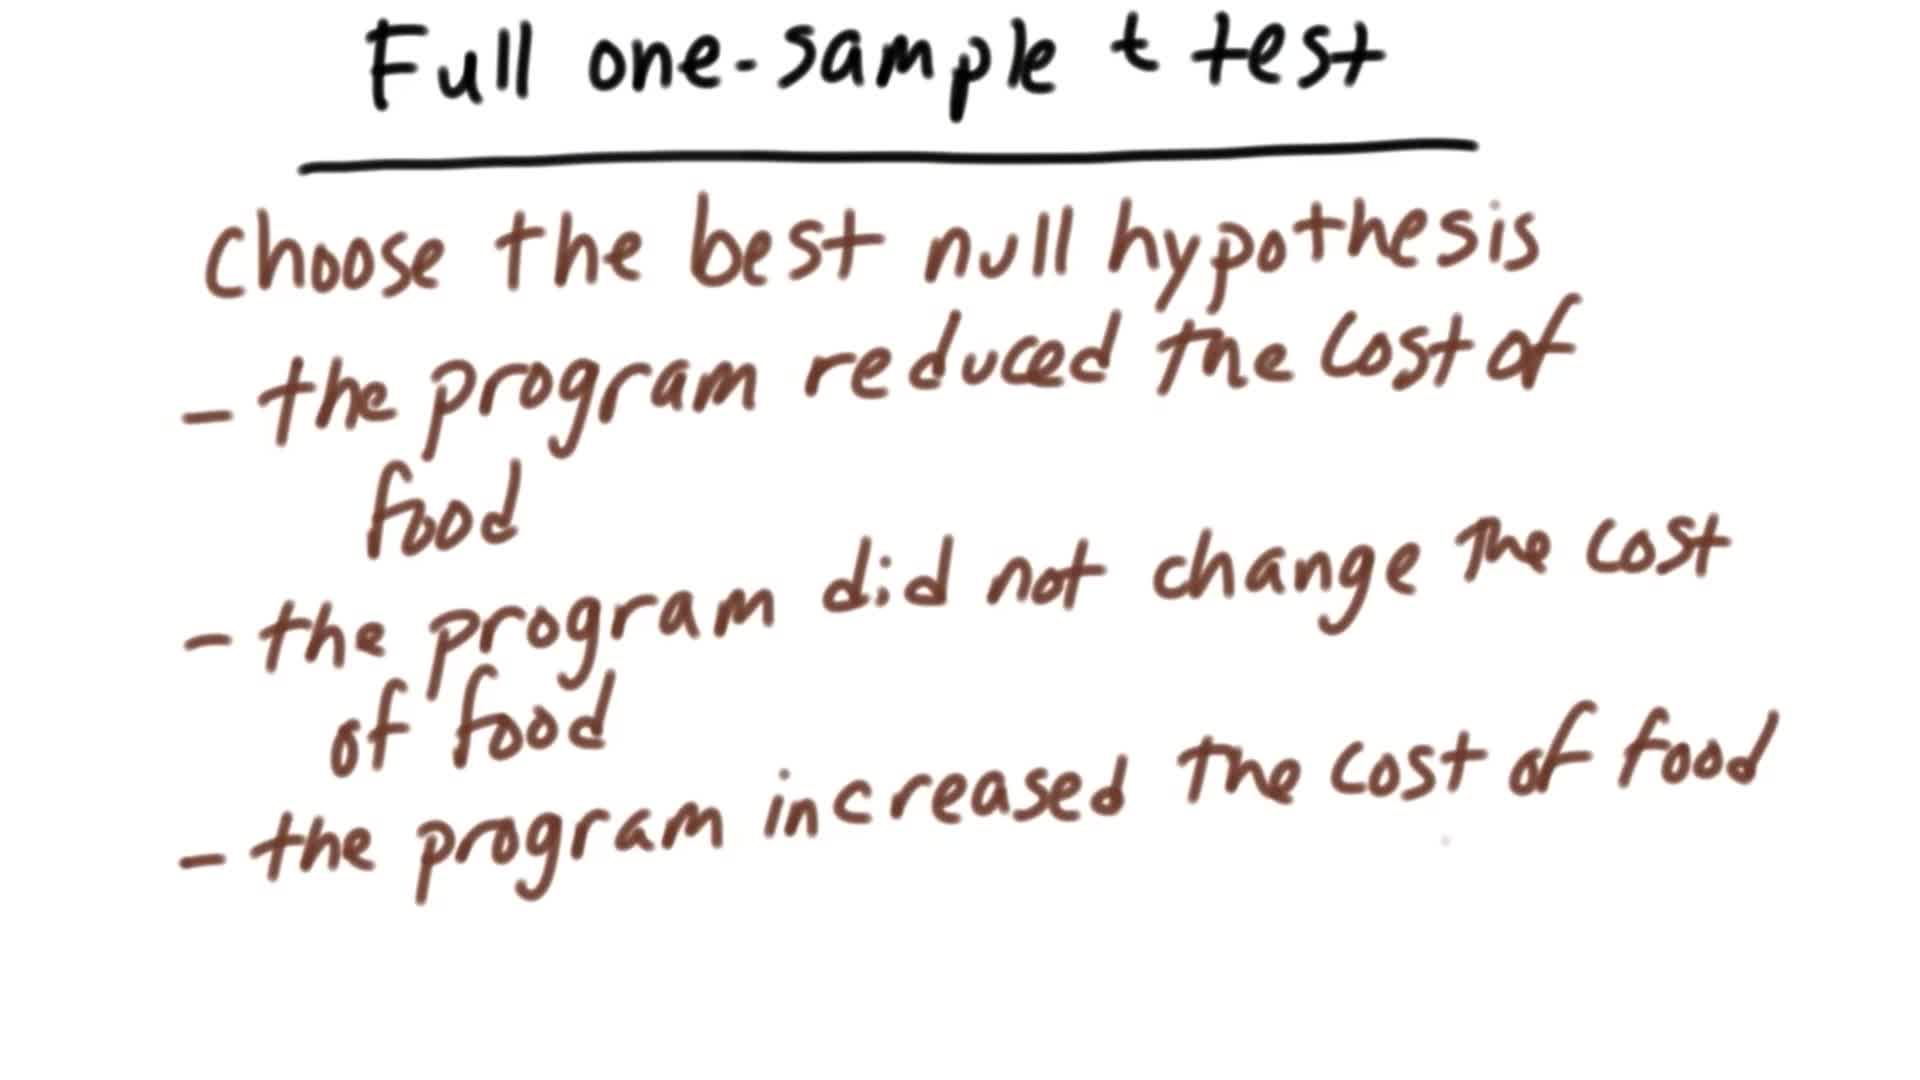 Full one-sample t test
Choose the best null hypothesis
- the program reduced the cost of
food
- the program did not change the cost
of food
- the program increased the cost of food